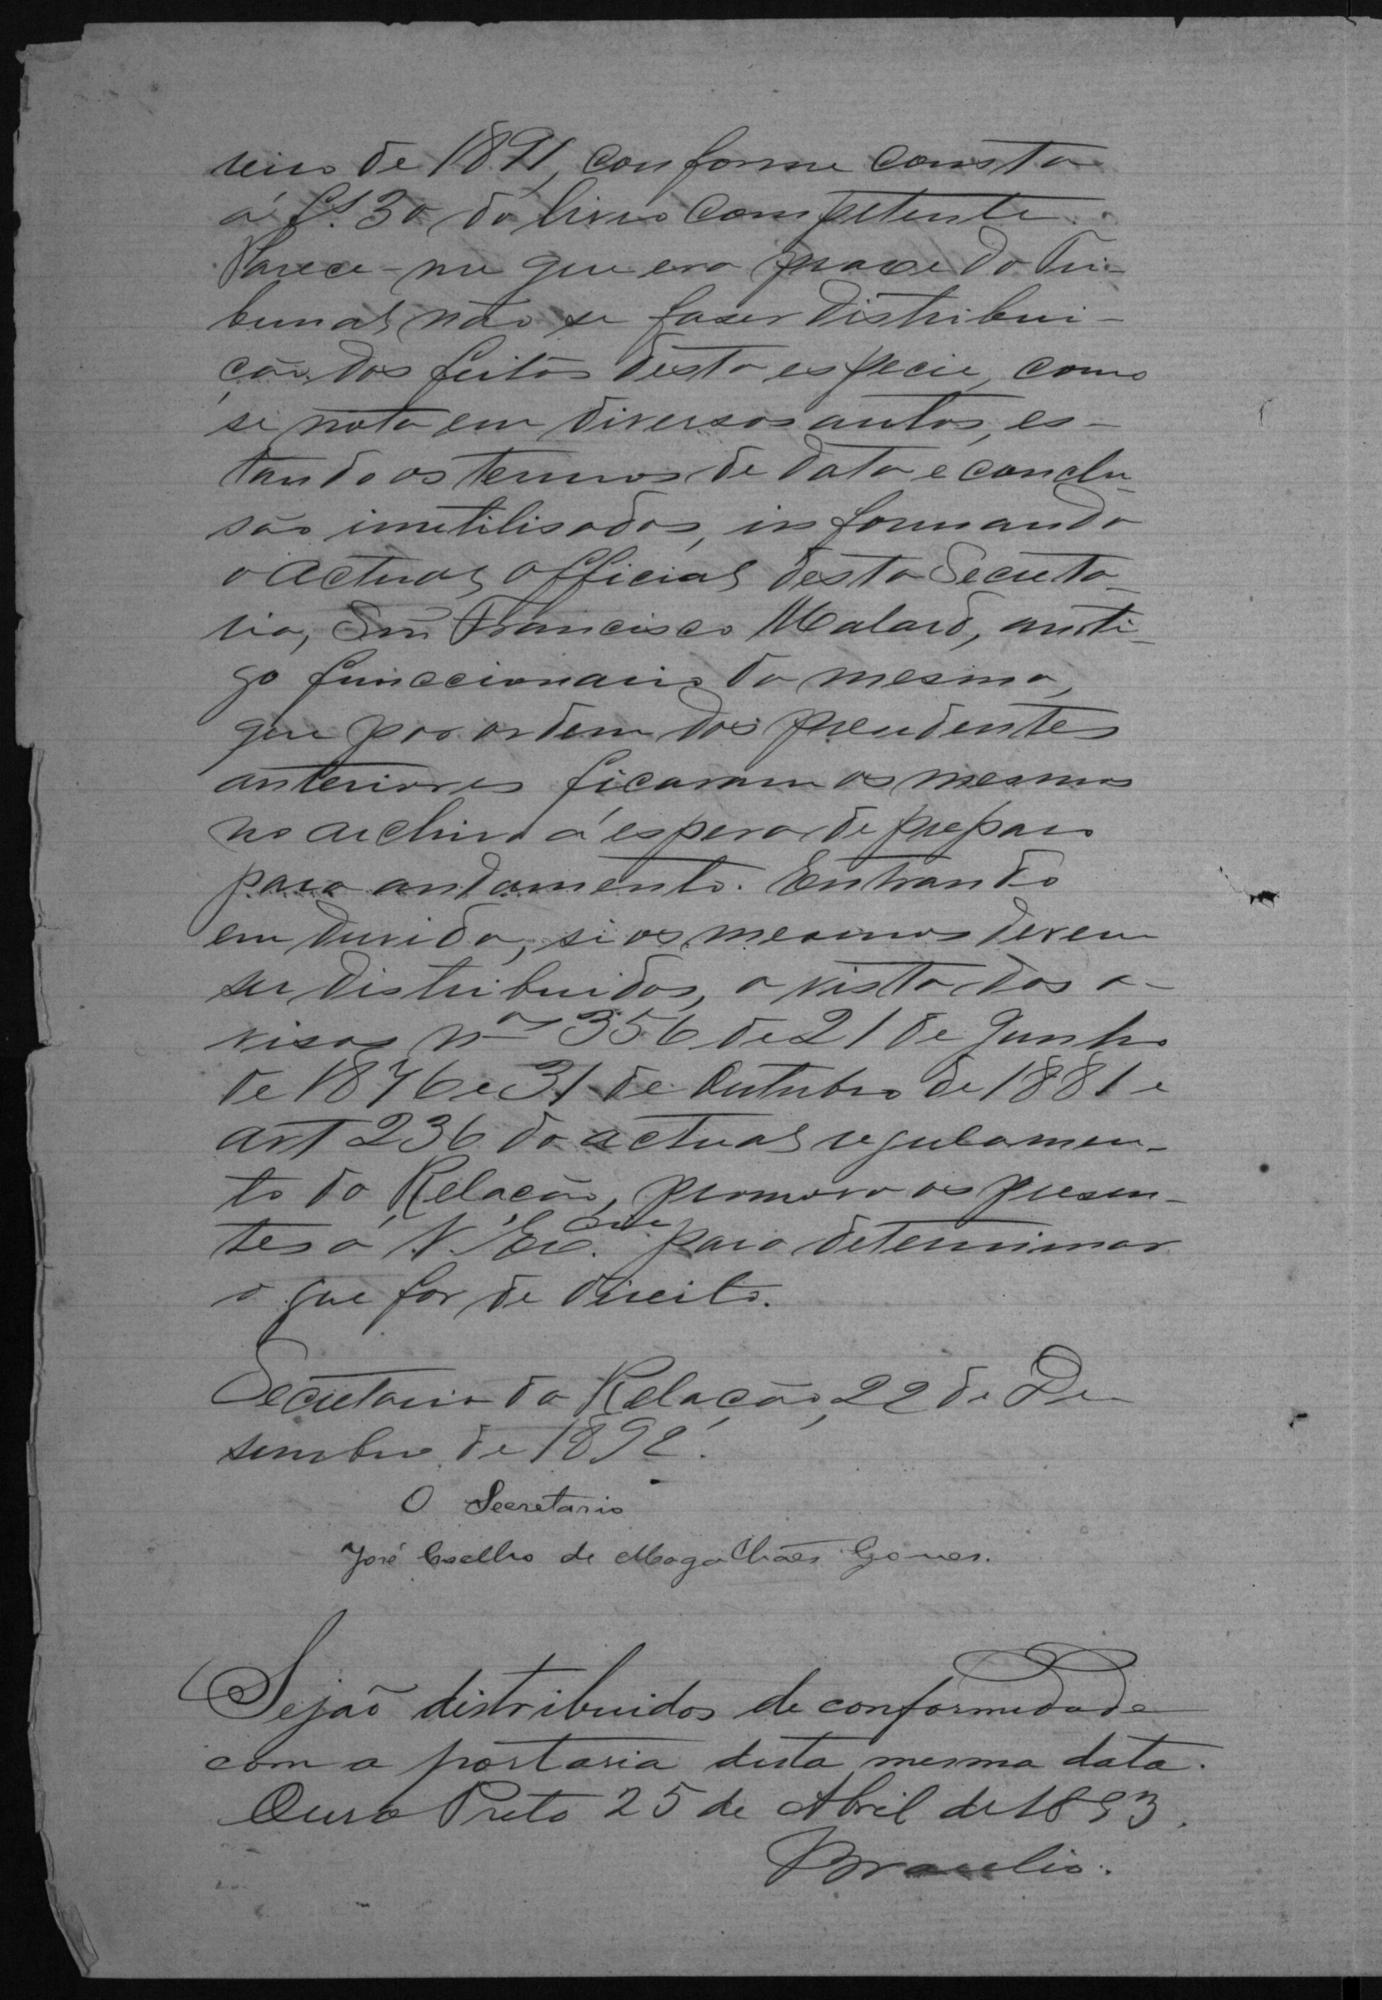 reiro de 1891, conforme consta
á fs. 30 do livro competente.
Parece-me que era praxe do Tri-
bunal não se faser distribui-
ção dos feitos desta especie, como
se nota em diversos autos, es-
tando os termos de data e conclu-
são inutilisados, informando
o actual official desta Secreta-
ria, Snr. Francisco Malard, anti-
go funccionario da mesma,
que por ordem dos presidentes
anteriores ficaram os mesmos
no archivo á espera de preparo
para andamento. Entrando
em duvida, si os mesmos devem
ser distribuidos, a vista dos a-
visos nos 356 de 21 de Junho
de 1876 e 31 de Outubro de 1881 e
art 236 do actual regulamen-
to da Relação, promovo os presen-
tes a V. Exc.cia para determinar
o que for de direito.
Secretaria da Relação, 22 de De-
sembro de 1892.
O Secretario
José Coelho de Magalhães Gomes.
Sejão distribuidos de conformidade
com a portaria desta mesma data.
Ouro Preto 25 de Abril de 1893.
Braulio.